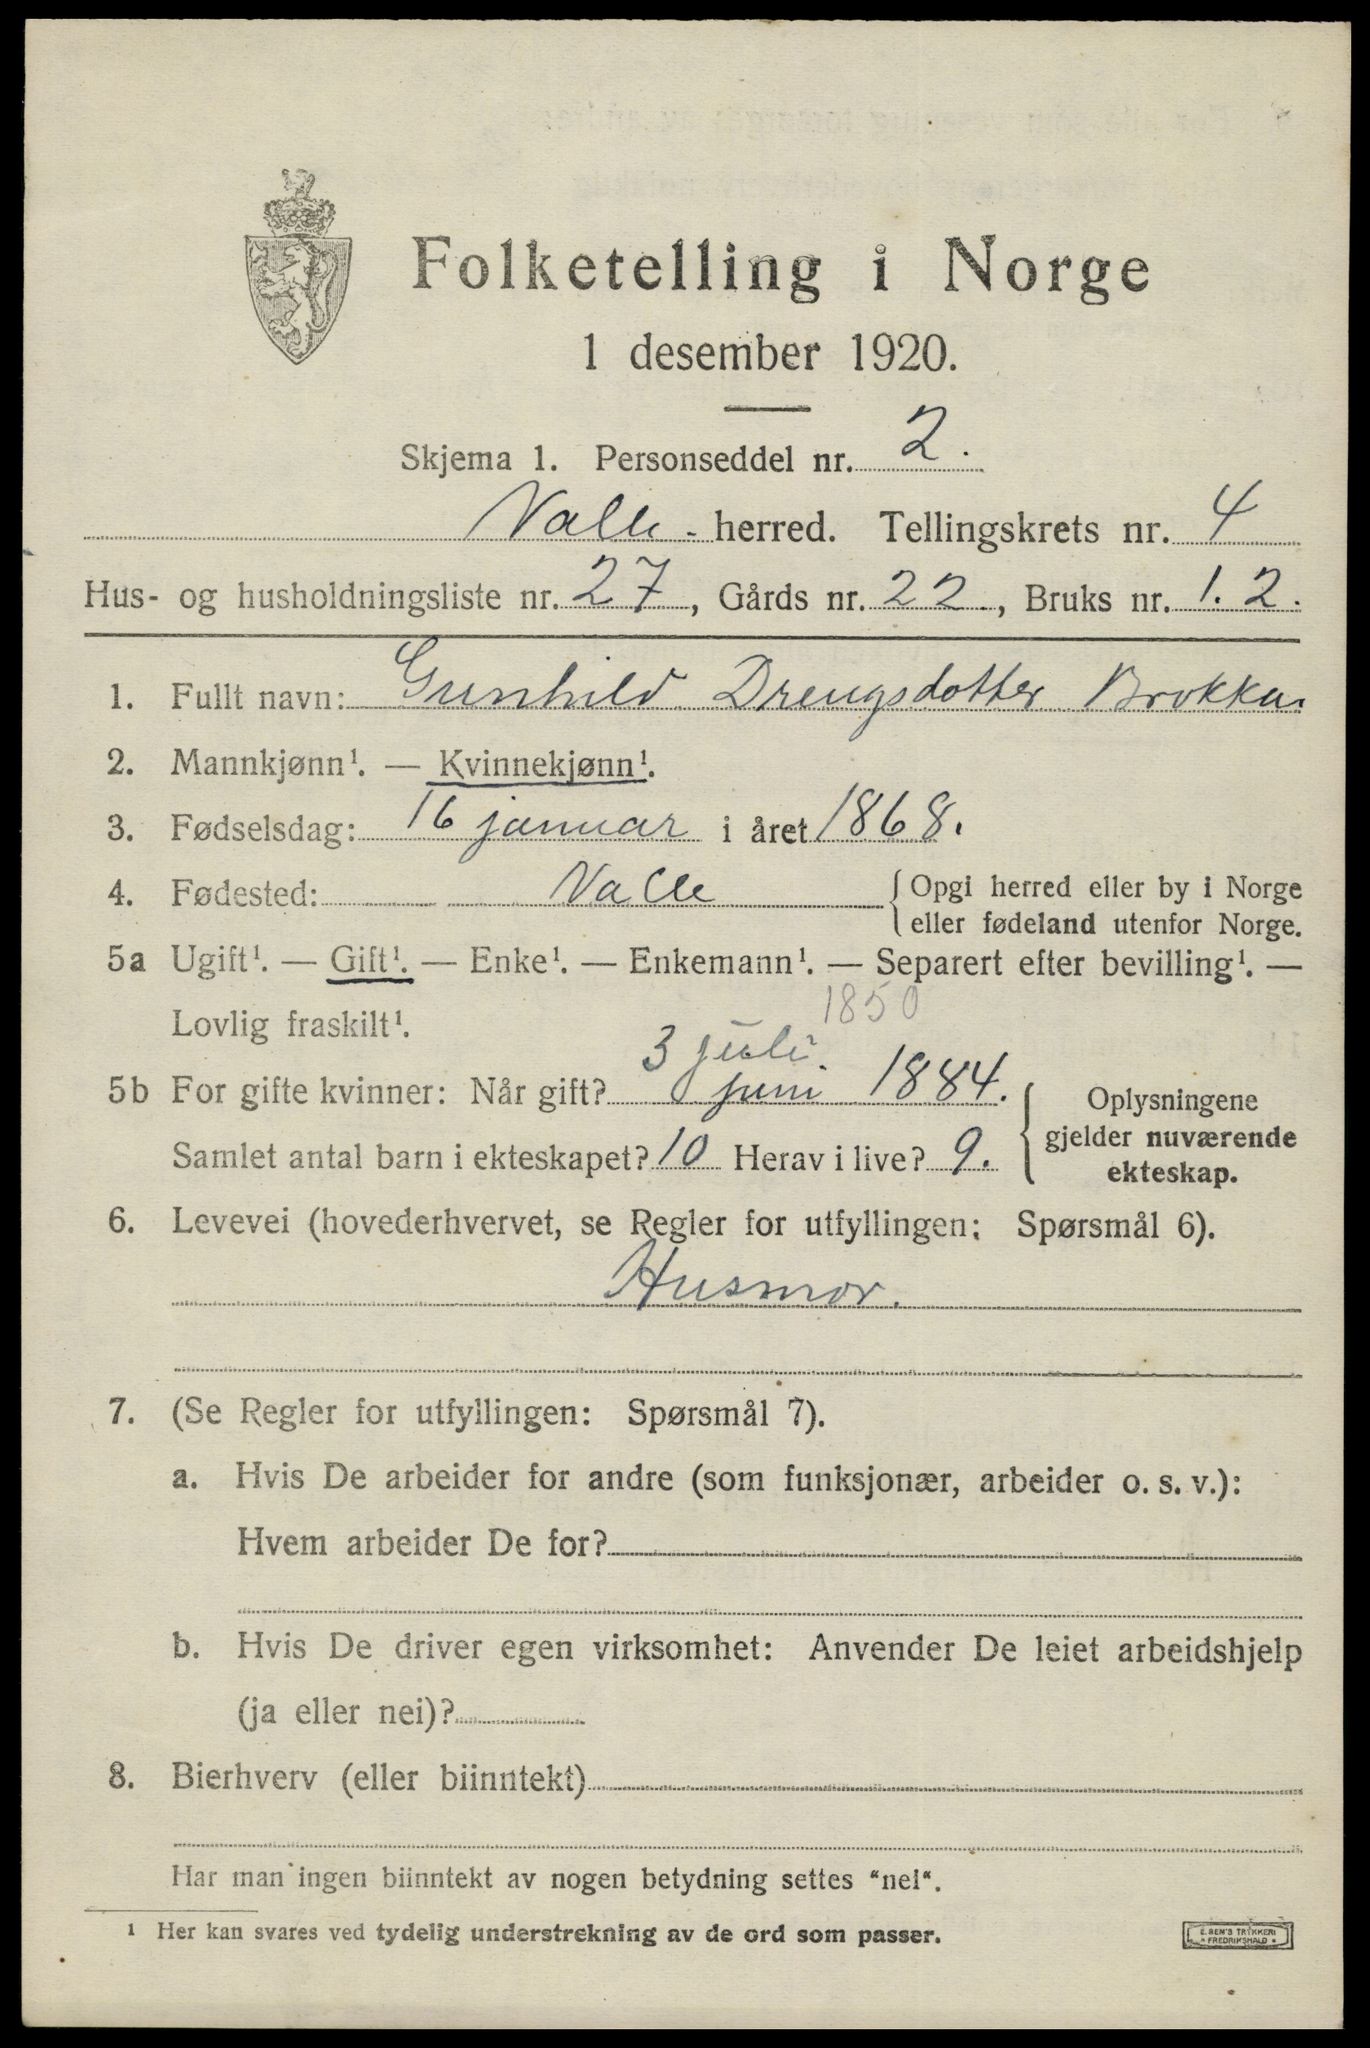 Folketelling i Norge
1 desember 1920.
Skjema 1. Personseddel nr. 2.
Valle herred. Tellingskrets nr. 4
Hus- og husholdningsliste nr. 27, Gårds nr. 22, Bruks nr. 1. 2.
1. Fullt navn: Gunhild Drengsdotter Brokka.
2. Mannkjønn¹. — Kvinnekjønn¹.
3. Fødselsdag: 16 januar i året 1868.
4. Fødested: Valle {Opgi herred eller by i Norge
eller fødeland utenfor Norge.
5a Ugift¹. — Gift¹. — Enke¹. — Enkemann¹. — Separert efter bevilling¹. —
1850
Lovlig fraskilt¹.
3 juli
5b For gifte kvinner: Når gift? juni 1884. { Oplysningene
gjelder nuværende
Samlet antal barn i ekteskapet? 10 Herav i live? 9.
ekteskap.
6. Levevei (hovederhvervet, se Regler for utfyllingen; Spørsmål 6).
Husmor.
7. (Se Regler for utfyllingen: Spørsmål 7).
a. Hvis De arbeider for andre (som funksjonær, arbeider o. s. v.):
Hvem arbeider De for?
b. Hvis De driver egen virksomhet: Anvender De leiet arbeidshjelp
(ja eller nei)?
8. Bierhverv (eller biinntekt)
Har man ingen biinntekt av nogen betydning settes "nei".
¹ Her kan svares ved tydelig understrekning av de ord som passer.
E. SEM'S TRYKKERI
FREDRIKSHALD